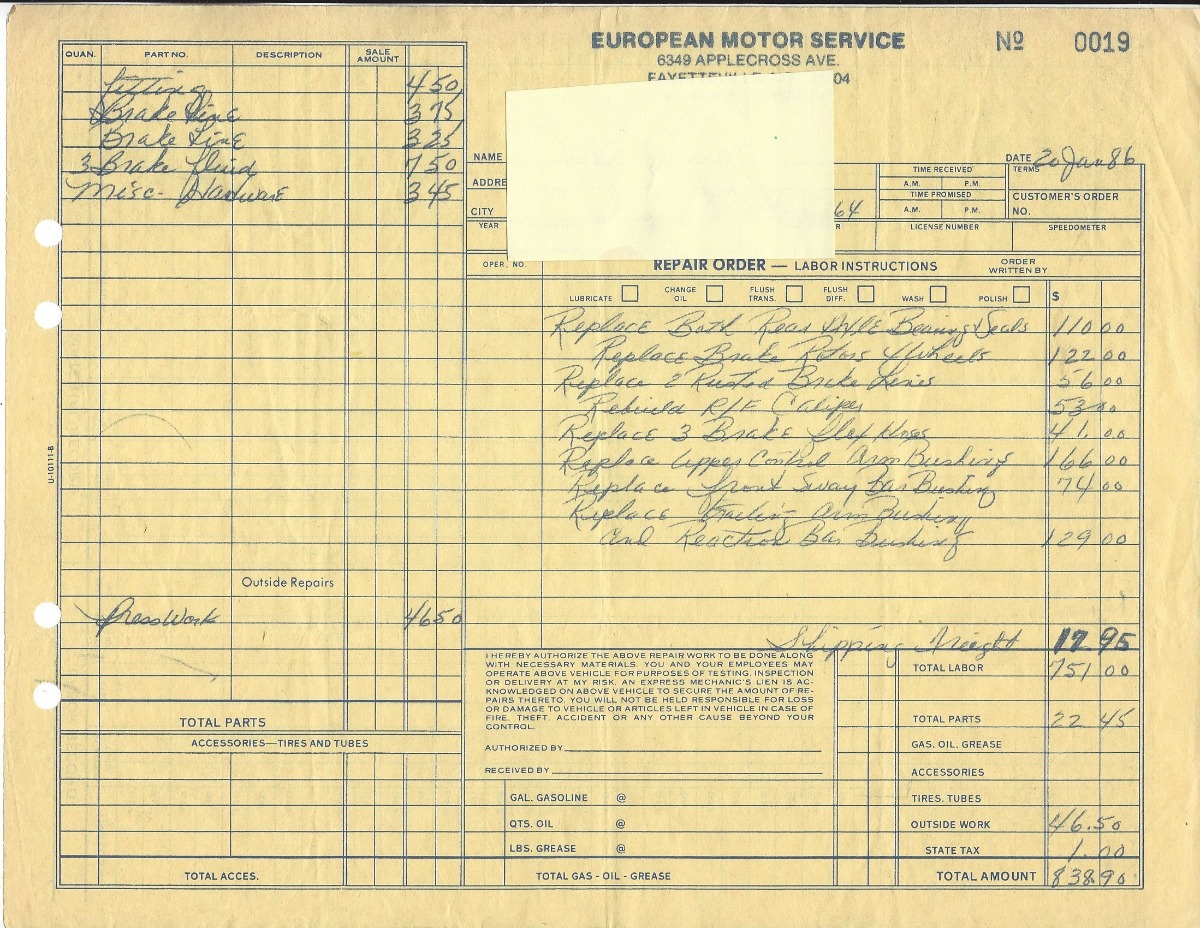 EUROPEAN MOTOR SERVICE
6349 APPLECROSS AVE.
04
Nº 0019
QUAN. PART NO. DESCRIPTION SALE AMOUNT
Fitting 4 50
Brake Line 3 75
Brake Line 3 25
3 Brake Fluid 7 50
Misc- Hardware 3 45
Outside Repairs
Press Work 46 50
TOTAL PARTS
ACCESSORIES—TIRES AND TUBES
TOTAL ACCES.
U-10111-8
NAME
DATE 20 Jan 86
ADDRE
TIME RECEIVED
A.M. P.M.
TIME PROMISED
A.M. P.M.
TERMS
CUSTOMER'S ORDER NO.
CITY
64
YEAR
R
LICENSE NUMBER
SPEEDOMETER
OPER. NO. REPAIR ORDER — LABOR INSTRUCTIONS ORDER WRITTEN BY
LUBRICATE CHANGE OIL FLUSH TRANS. FLUSH DIFF. WASH POLISH $
Replace Both Rear Axle Bearing & Seals 110 00
Replace Brake Rotors 4 Wheels 122 00
Replace 2 Rusted Brake Lines 56 00
Rebuild R/F Caliper 53 00
Replace 3 Brake Flex Hoses 41.00
Replace Upper Control Arm Bushings 166 00
Replace Front Sway Bar Bushing 74 00
Replace Trailing Arm Bushing
and Reaction Bar Bushing 129 00
Shipping Freight 17 95
I HEREBY AUTHORIZE THE ABOVE REPAIR WORK TO BE DONE ALONG
WITH NECESSARY MATERIALS. YOU AND YOUR EMPLOYEES MAY
OPERATE ABOVE VEHICLE FOR PURPOSES OF TESTING, INSPECTION
OR DELIVERY AT MY RISK. AN EXPRESS MECHANIC'S LIEN IS AC-
KNOWLEDGED ON ABOVE VEHICLE TO SECURE THE AMOUNT OF RE-
PAIRS THERETO. YOU WILL NOT BE HELD RESPONSIBLE FOR LOSS
OR DAMAGE TO VEHICLE OR ARTICLES LEFT IN VEHICLE IN CASE OF
FIRE, THEFT, ACCIDENT OR ANY OTHER CAUSE BEYOND YOUR
CONTROL.
AUTHORIZED BY
RECEIVED BY
GAL. GASOLINE @
QTS. OIL @
LBS. GREASE @
TOTAL GAS - OIL - GREASE
TOTAL LABOR 751 00
TOTAL PARTS 22 45
GAS. OIL. GREASE
ACCESSORIES
TIRES. TUBES
OUTSIDE WORK 46.50
STATE TAX 1.00
TOTAL AMOUNT 838.90